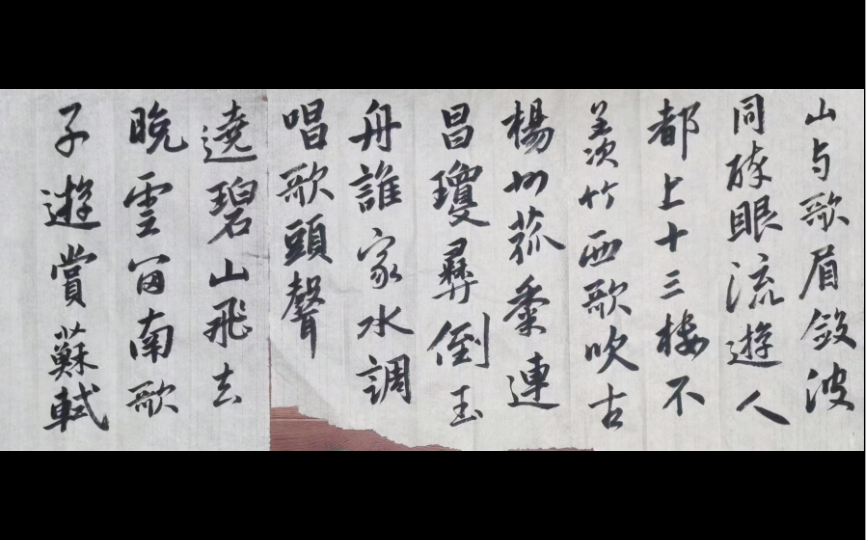 山与歌眉斂波
同醉眼流遊人
都上十三樓不
羨竹西歌吹古
楊州菰黍連
昌瓊彝倒玉
舟誰家水調
唱歌頭聲
遶碧山飛去
晚雲留南歌
子遊賞蘇軾